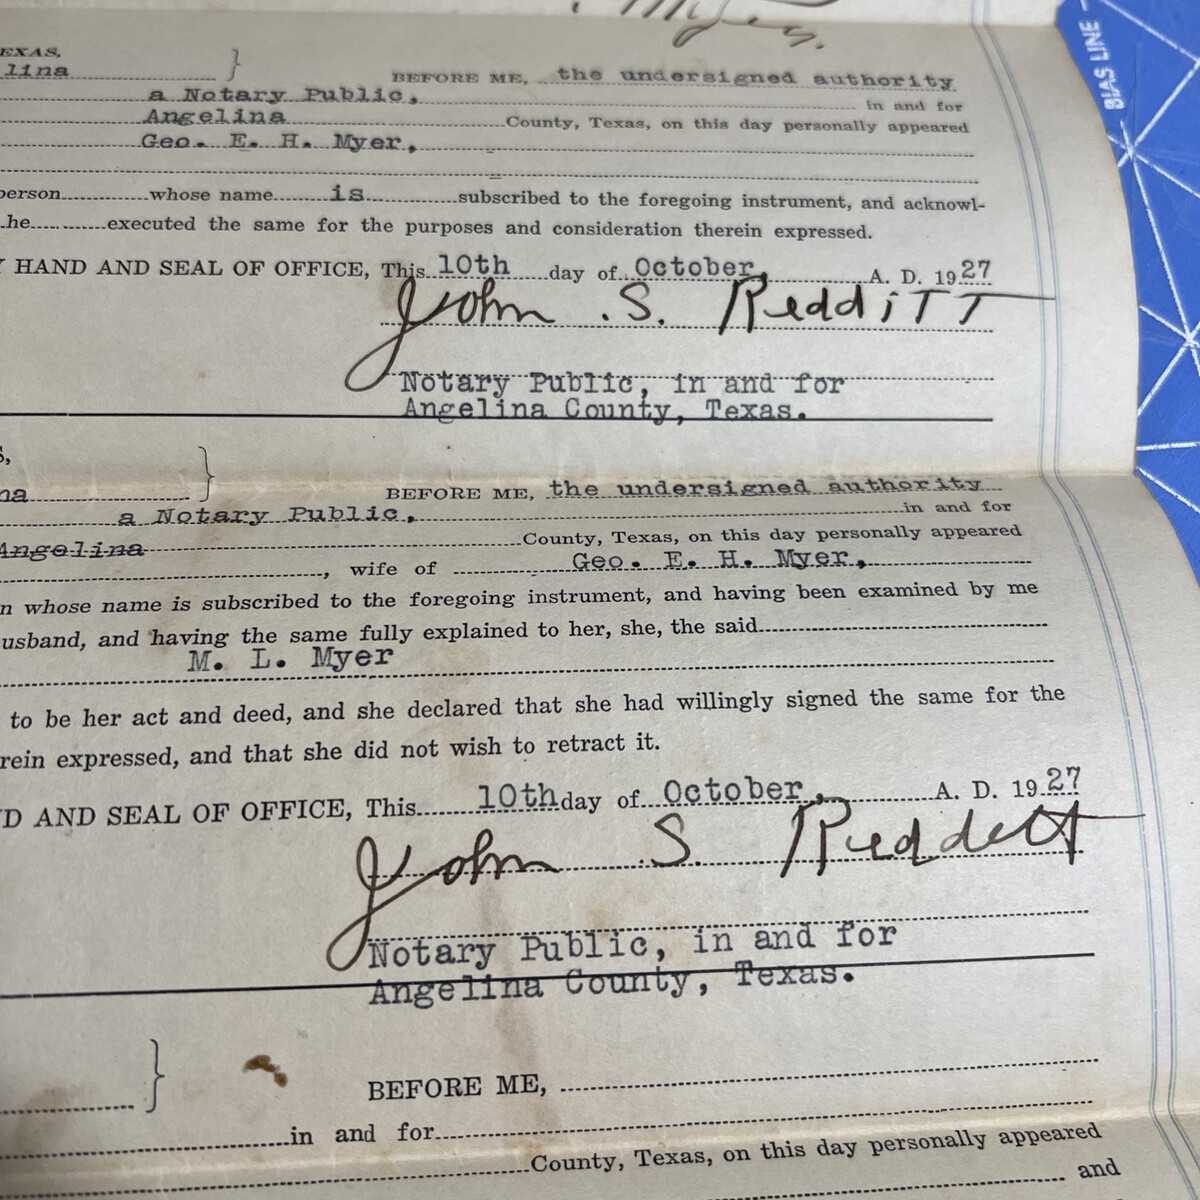 Myer.
BIAS LINE
EXAS,
lina } BEFORE ME, the undersigned authority
a Notary Public, in and for
Angelina County, Texas, on this day personally appeared
Geo. E. H. Myer,
person whose name is subscribed to the foregoing instrument, and acknowl-
he executed the same for the purposes and consideration therein expressed.
Y HAND AND SEAL OF OFFICE, This 10th day of October, A. D. 1927
John S. Redditt
Notary Public, in and for
Angelina County, Texas.
S,
na } BEFORE ME, the undersigned authority
a Notary Public, in and for
Angelina County, Texas, on this day personally appeared
, wife of Geo. E. H. Myer,
n whose name is subscribed to the foregoing instrument, and having been examined by me
usband, and having the same fully explained to her, she, the said
M. L. Myer
to be her act and deed, and she declared that she had willingly signed the same for the
rein expressed, and that she did not wish to retract it.
D AND SEAL OF OFFICE, This 10th day of October, A. D. 1927
John S. Redditt
Notary Public, in and for
Angelina County, Texas.
} BEFORE ME,
in and for
County, Texas, on this day personally appeared
and